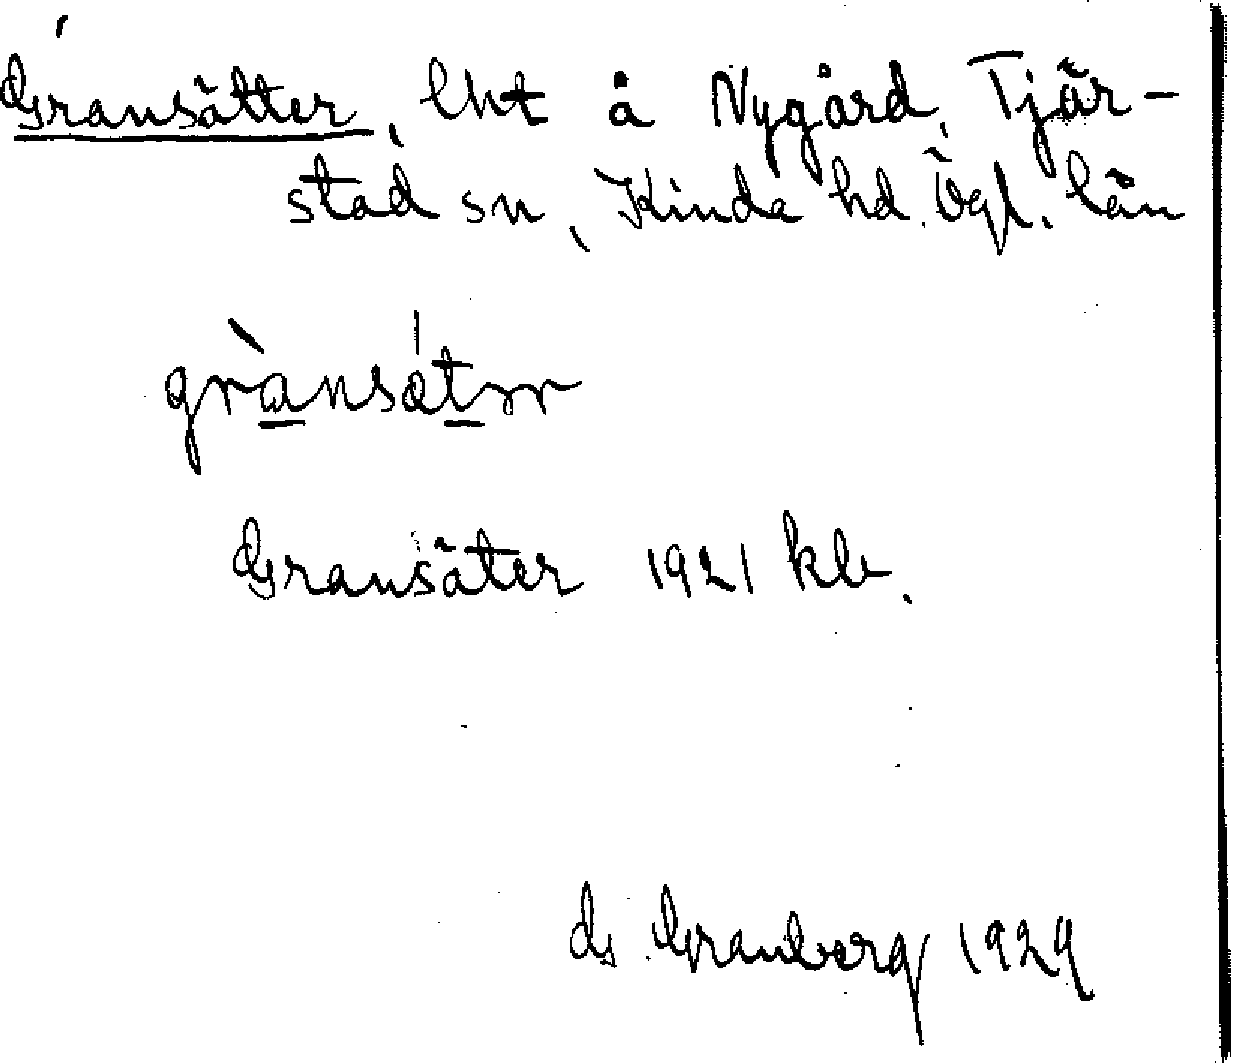 Gransätter, lht å Nygård, Tjär-
stad sn, Kinda hd. Ögl. län
grànsátər
Gransäter 1921 kb.
G. Granberg 1929